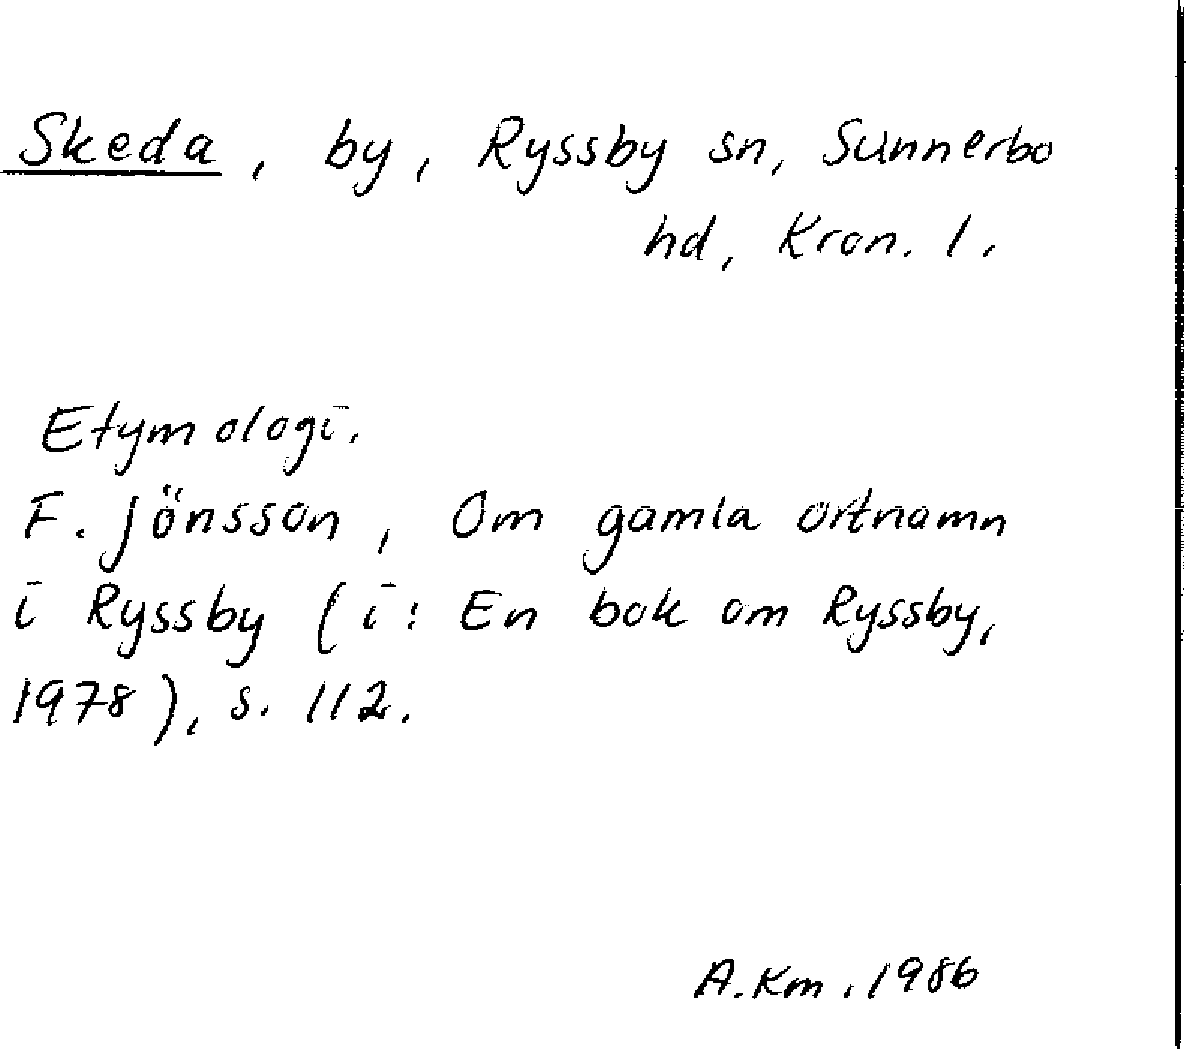 Skeda, by, Ryssby sn, Sunnerbo
hd, Kron. l.
Etymologi.
F. Jönsson, Om gamla ortnamn
i Ryssby (i: En bok om Ryssby,
1978), s. 112.
A. Km. 1986